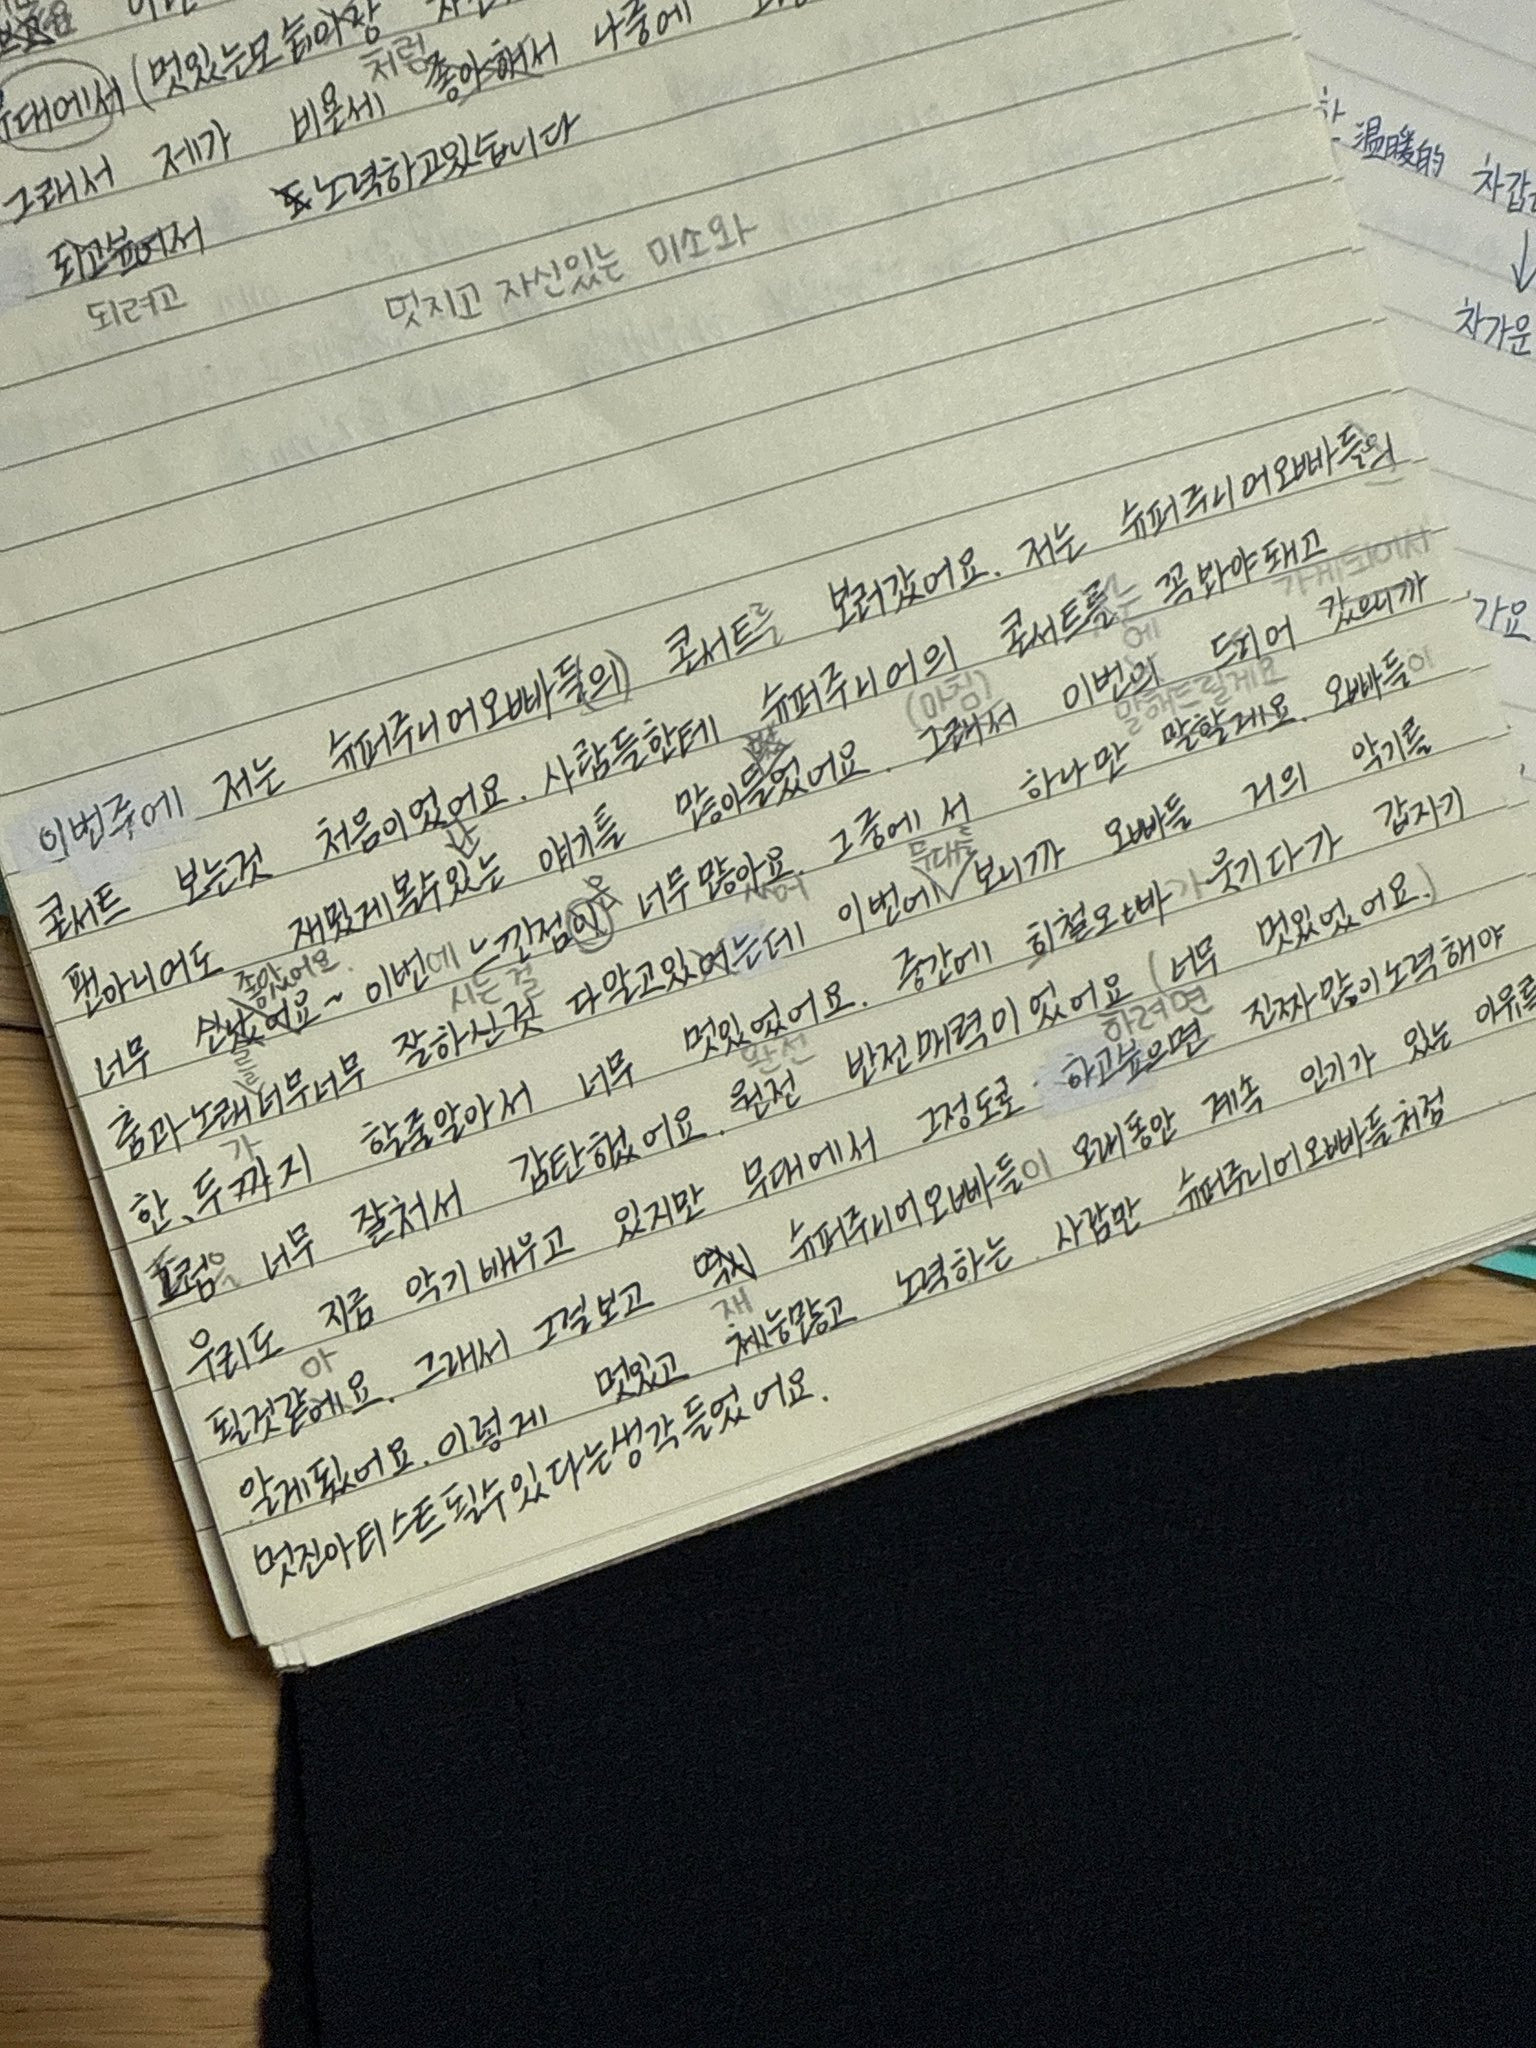 무대에서 (멋있는모습이랑
처럼
그래서 제가 비욘세 좋아해서 나중에
되고싶어서 노력하고있습니다
되려고 멋지고 자신있는 미소와
이번주에 저는 슈퍼주니어오빠들(의) 콘서트를 보러갔어요. 저는 슈퍼주니어오빠들의
콘서트 보는것 처음이었어요. 사람들한테 슈퍼주니어의 콘서트를 꼭봐야돼고
는
가게되어서
(마침)
에
팬아니어도 재밌게볼수있는 얘기를 많이들었어요. 그래서 이번의 드디어 갔으니까
말해드릴게요
너무 신났어요~ 이번에 느낀점이 너무많아요. 그중에서 하나만 말할게요. 오빠들이
좋았어요.
은
시는 걸
무대를
춤과노래너무너무 잘하신것 다알고있는데 이번에 보니까 오빠들 거의 악기를
가
한, 두까지 할줄알아서 너무 멋있었어요. 중간에 희철오빠가 웃기다가 갑자기
드럼을 너무 잘쳐서 감탄했어요. 원전 반전매력이었어요 (너무 멋있었어요.)
완전
하려면
우리도 지금 악기배우고 있지만 무대에서 그정도로 하고싶으면 진짜많이노력해야
아
될것같에요. 그래서 그걸보고 역시 슈퍼주니어오빠들이 오래동안 계속 인기가 있는 이유를
재
알게됬어요. 이렇게 멋있고 체능많고 노력하는 사람만 슈퍼주니어오빠들처럼
멋진아티스트될수있다는생각들었어요.
温暖的 차갑
↓
차가운
가요